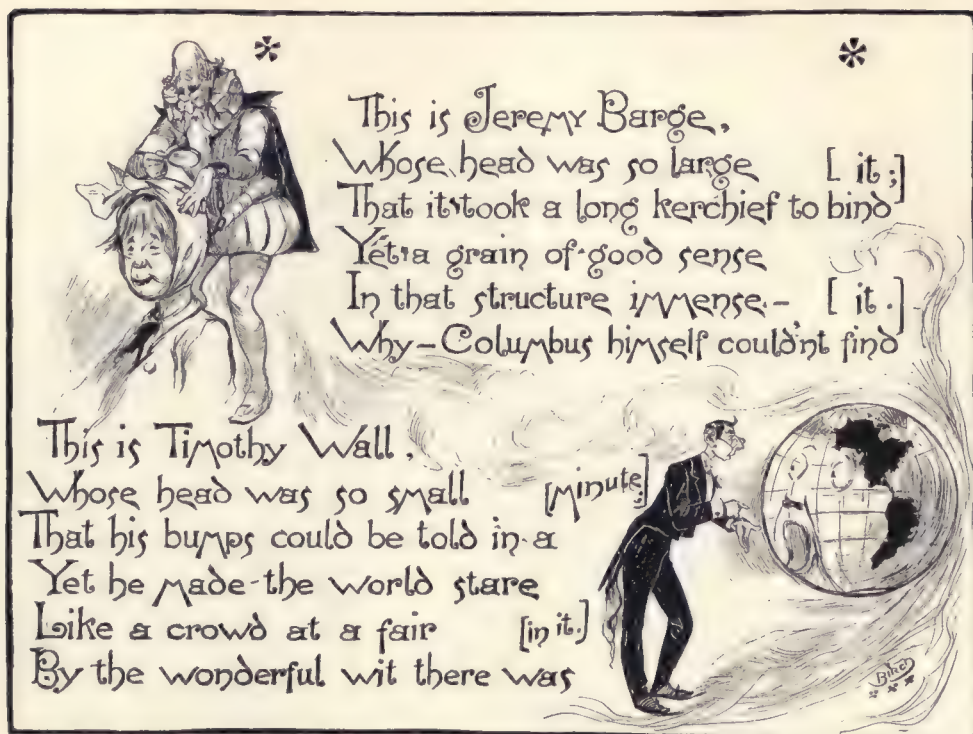 This is Jeremy Barge,
Whose head was so large
[it;]
That it took a long kerchief to bind
Yet a grain of good sense
In that structure immense—
[it.]
Why—Columbus himself could'nt find
This is Timothy Wall,
Whose head was so small
[minute;]
That his bumps could be told in a
Yet he made the world stare
Like a crowd at a fair
[in it.]
By the wonderful wit there was
Bird